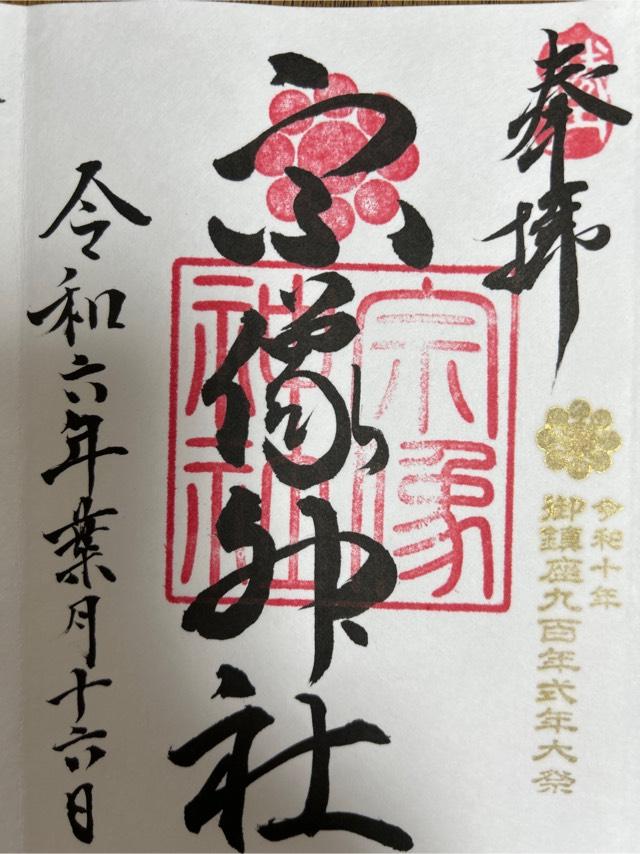 奉拝
令和十年
御鎮座九百年式年大祭
宗像神社
宗像
神社
令和六年葉月十六日